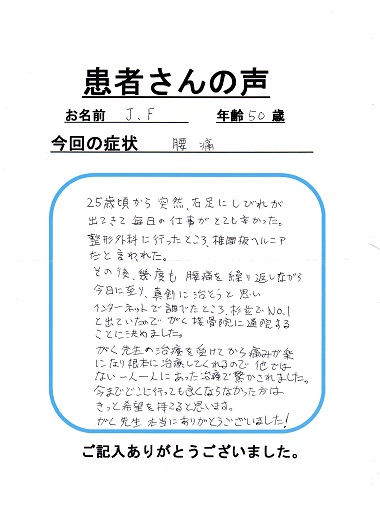 患者さんの声
お名前 J.F 年齢 50 歳
今回の症状 腰痛
25歳頃から突然、右足にしびれが
出てきて毎日の仕事がとても辛かった。
整形外科に行ったところ、椎間板ヘルニア
だと言われた。
その後、幾度も腰痛を繰り返しながら
今日に至り、真剣に治そうと思い
インターネットで調べたところ、杉並でNO.1
と出ていたので がく整骨院に通院する
ことに決めました。
がく先生の治療を受けてから痛みが楽
になり根本に治療してくれるので 他では
ない一人一人にあった治療で驚かされました。
今までどこに行っても良くならなかった方は
きっと希望を持てると思います。
がく先生 本当にありがとうございました!
ご記入ありがとうございました。